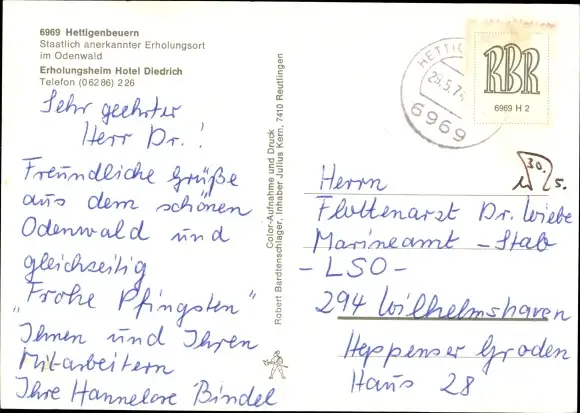 6969 Hettigenbeuern
Staatlich anerkannter Erholungsort
im Odenwald
Erholungsheim Hotel Diedrich
Telefon (06286) 226
Sehr geehrter
Herr Dr.!
Freundliche Grüße
aus dem schönen
Odenwald und
gleichzeitig
„Frohe Pfingsten"
Ihnen und Ihren
Mitarbeitern
Ihre Hannelore Bindel
Color-Aufnahme und Druck
Robert Bardtenschlager, Inhaber Julius Kern, 7410 Reutlingen
6969
RBR
6969 H 2
30.
5.
Herrn
Flottenarzt Dr. Wiebe
Marineamt - Stab
- LSO -
294 Wilhelmshaven
Heppenser Groden
Haus 28